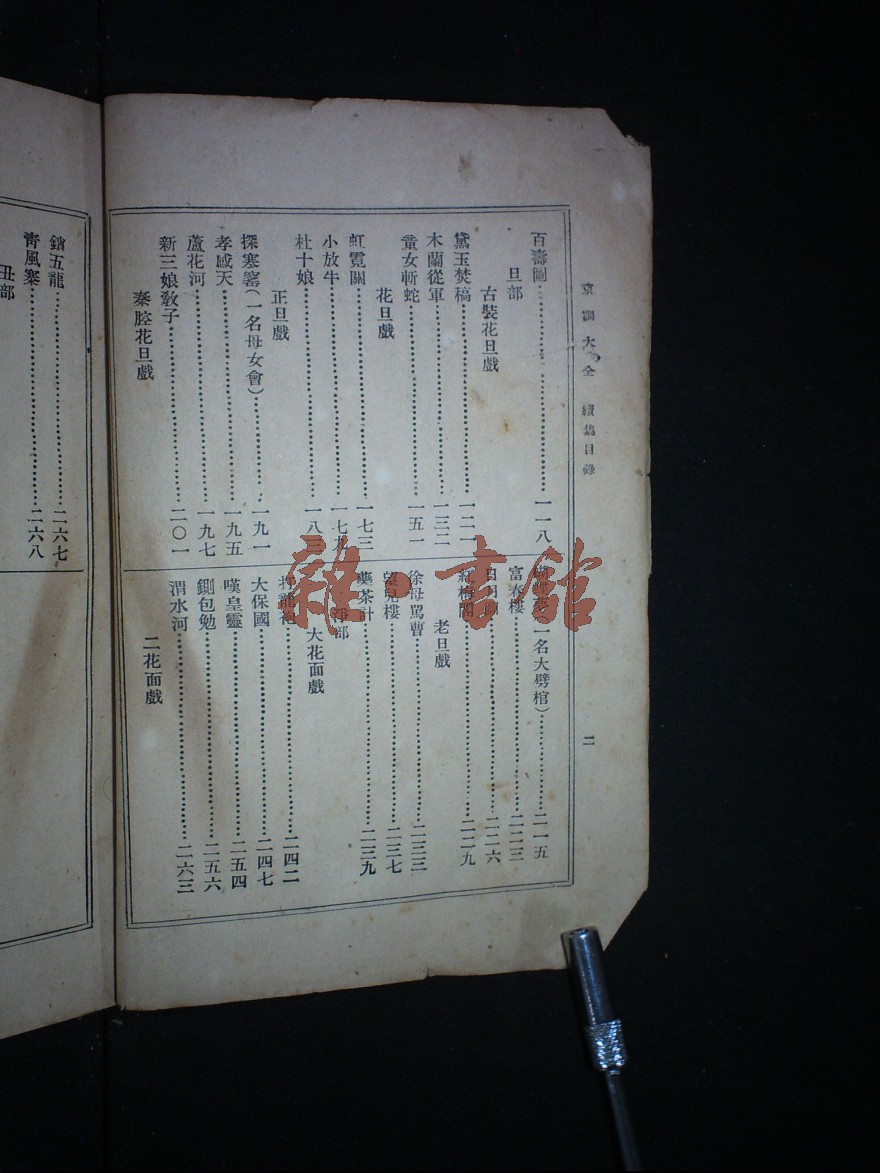 京調大全 續集目錄
二
百壽圖……一一八
旦部
古裝花旦戲
黛玉焚稿……一二一
木蘭從軍……一三二
童女斬蛇……一五一
花旦戲
虹霓關……一七三
小放牛……一七九
杜十娘……一八三
正旦戲
探寒窰(一名母女會)……一九一
孝感天……一九五
蘆花河……一九七
新三娘敎子……二〇一
秦腔花旦戲
(一名大劈棺)……二一五
富春樓……二二三
二二六
紅梅閣……二二九
老旦戲
徐母罵曹……二三三
望兒樓……二三七
藥茶計……二三九
淨部
大花面戲
打龍袍……二四二
大保國……二四七
嘆皇靈……二五四
鍘包勉……二五六
渭水河……二六三
二花面戲
鎖五龍……二六七
靑風寨……二六八
丑部
雜·書館